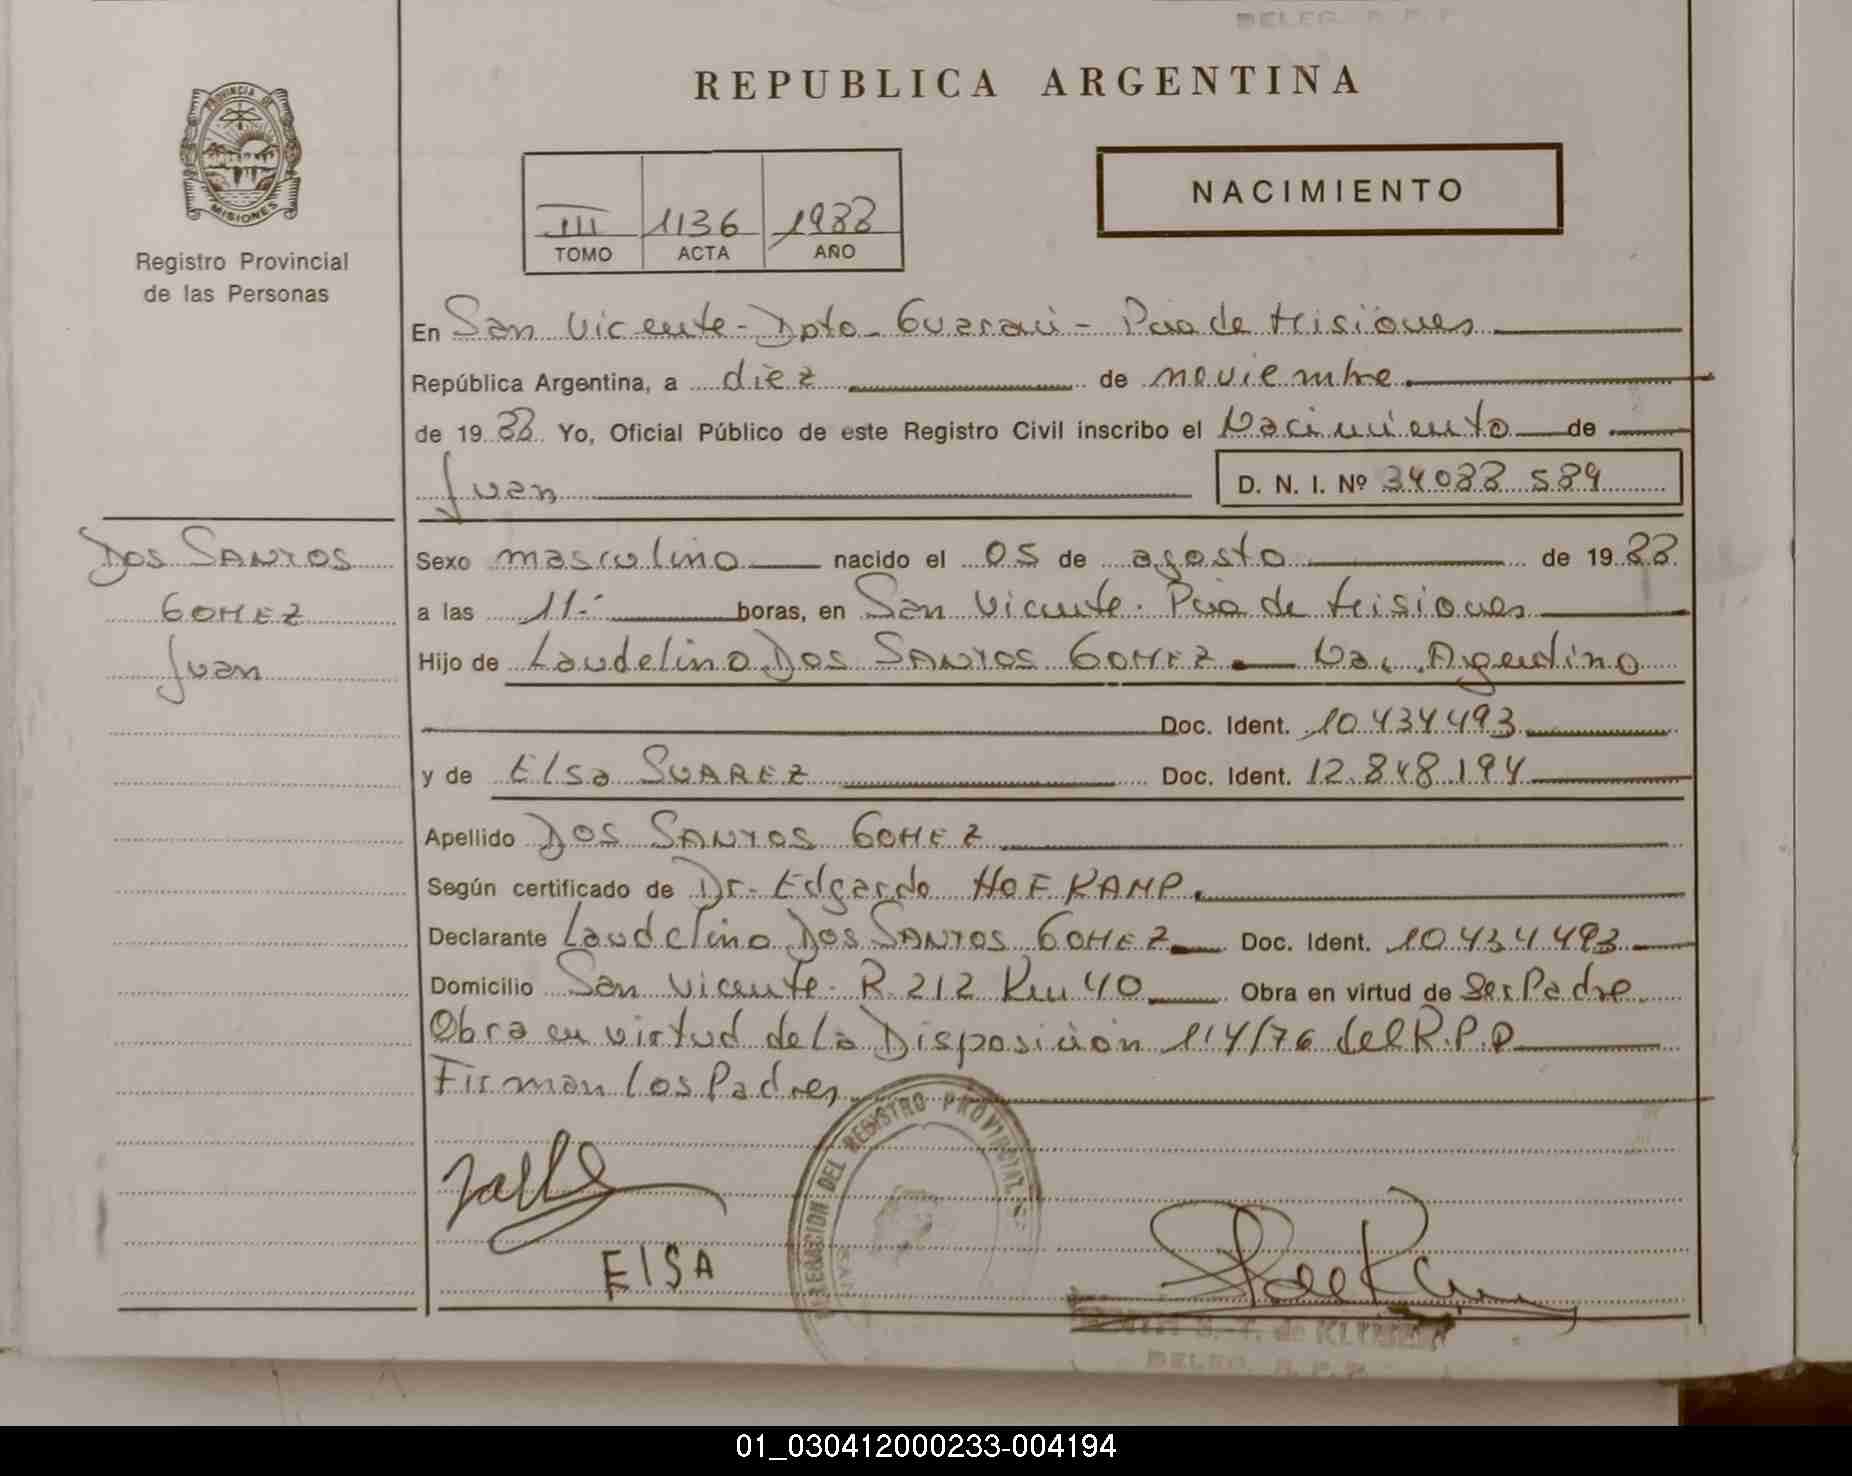 DELEG. R. P. P.
REPUBLICA ARGENTINA
PROVINCIA DE
MISIONES
Registro Provincial
de las Personas
III 1136 1988
TOMO ACTA AÑO
NACIMIENTO
En San Vicente - Dpto - Guarani - Pcia de Misiones
República Argentina, a diez de noviembre
de 1988 Yo, Oficial Público de este Registro Civil inscribo el Nacimiento de
Juan D. N. I. Nº 34088 589
DOS SANTOS
GOMEZ
Juan
Sexo masculino nacido el 05 de agosto de 1988
a las 11.- boras, en San Vicente. Pcia de Misiones
Hijo de Laudelino DOS SANTOS GOMEZ Nac. Argentino
Doc. Ident. 10.434.493
y de Elsa SUAREZ Doc. Ident. 12.848.194
Apellido DOS SANTOS GOMEZ
Según certificado de Dr. Edgardo HOFKAMP.
Declarante Laudelino DOS SANTOS GOMEZ Doc. Ident. 10.434.493
Domicilio San Vicente. R. 212 Km 40 Obra en virtud de Ser Padre
Obra en virtud de la Disposición 114/76 del R.P.P
Firman los Padres
DEL REGISTRO PROVINCIAL
ElSA
de
DELEG. R. P. P.
01_030412000233-004194